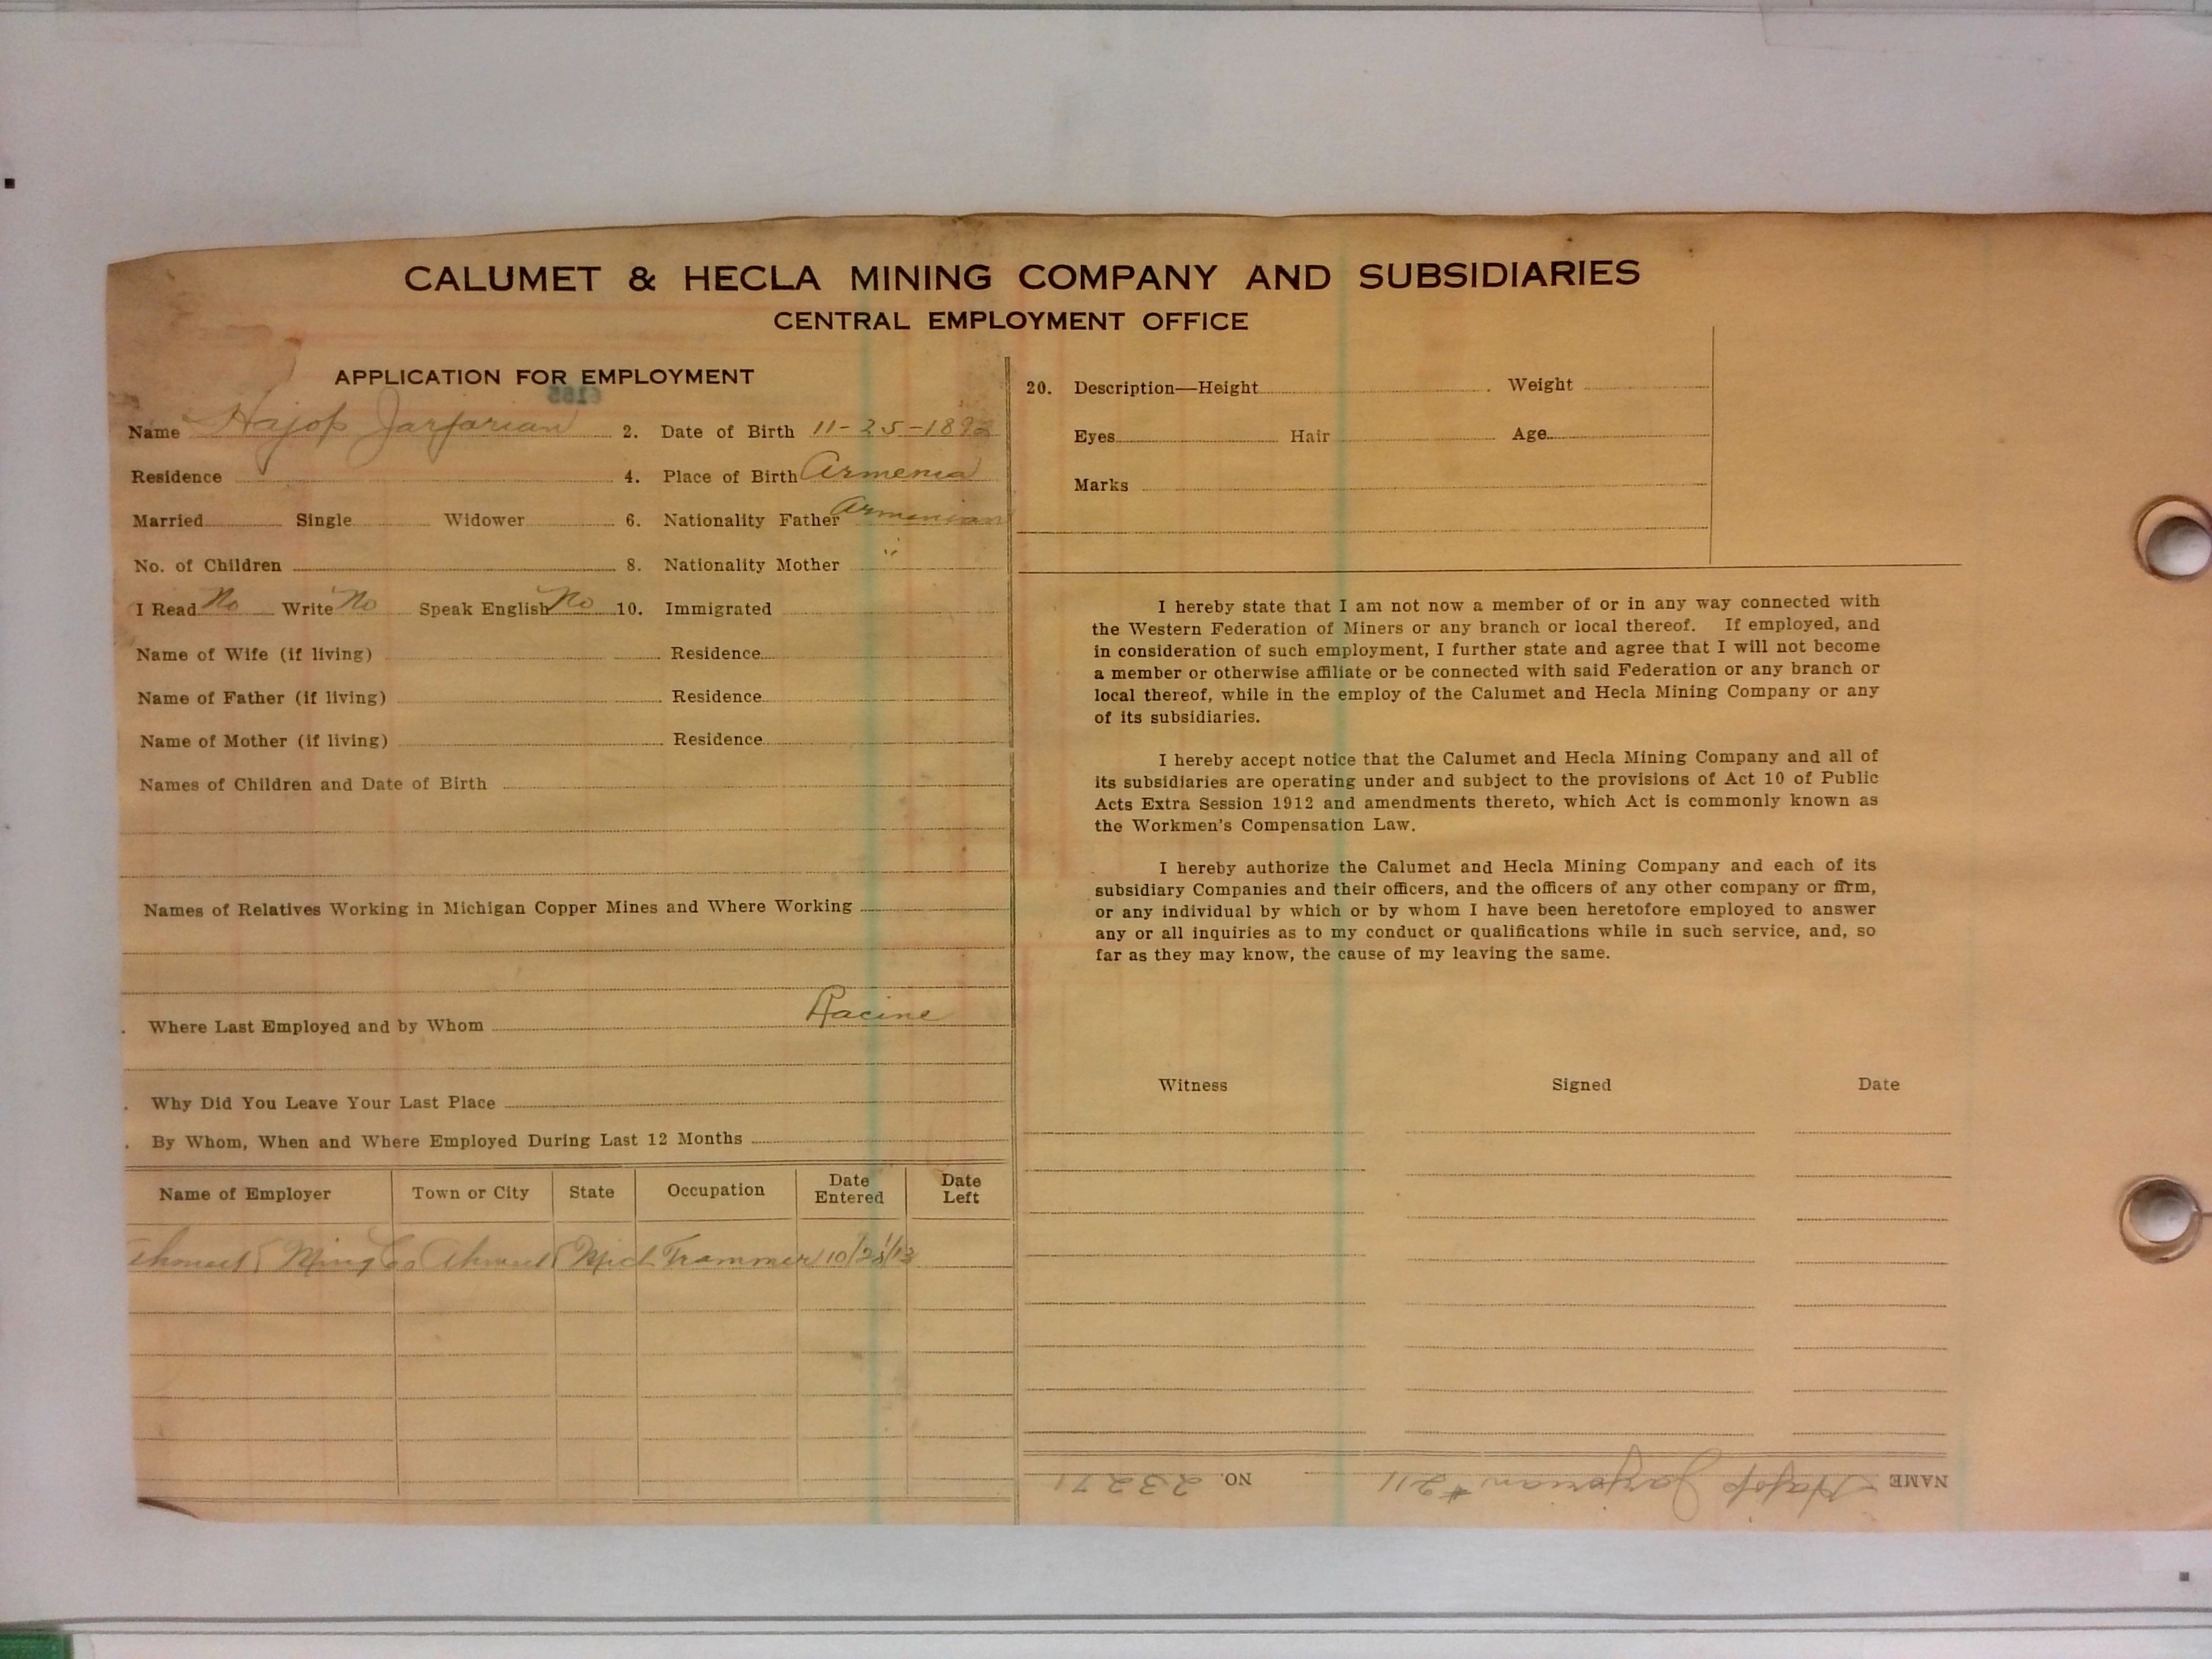 CALUMET & HECLA MINING COMPANY AND SUBSIDIARIES
CENTRAL EMPLOYMENT OFFICE
APPLICATION FOR EMPLOYMENT
Name Hajop Jarjarian 2. Date of Birth 11-25-1892
Residence 4. Place of Birth Armenia
Married Single Widower 6. Nationality Father Armenian
No. of Children 8. Nationality Mother "
I Read No Write No Speak English No 10. Immigrated
Name of Wife (if living) Residence
Name of Father (if living) Residence
Name of Mother (if living) Residence
Names of Children and Date of Birth
Names of Relatives Working in Michigan Copper Mines and Where Working
Where Last Employed and by Whom Racine
Why Did You Leave Your Last Place
By Whom, When and Where Employed During Last 12 Months
Name of Employer Town or City State Occupation Date Entered Date Left
Ahmeek Ming Co Ahmeek Mich Trammer 10/28/13
20. Description—Height Weight
Eyes Hair Age
Marks
I hereby state that I am not now a member of or in any way connected with
the Western Federation of Miners or any branch or local thereof. If employed, and
in consideration of such employment, I further state and agree that I will not become
a member or otherwise affiliate or be connected with said Federation or any branch or
local thereof, while in the employ of the Calumet and Hecla Mining Company or any
of its subsidiaries.
I hereby accept notice that the Calumet and Hecla Mining Company and all of
its subsidiaries are operating under and subject to the provisions of Act 10 of Public
Acts Extra Session 1912 and amendments thereto, which Act is commonly known as
the Workmen's Compensation Law.
I hereby authorize the Calumet and Hecla Mining Company and each of its
subsidiary Companies and their officers, and the officers of any other company or firm,
or any individual by which or by whom I have been heretofore employed to answer
any or all inquiries as to my conduct or qualifications while in such service, and, so
far as they may know, the cause of my leaving the same.
Witness Signed Date
NAME Hajop Jarjarian #211 NO. 23271